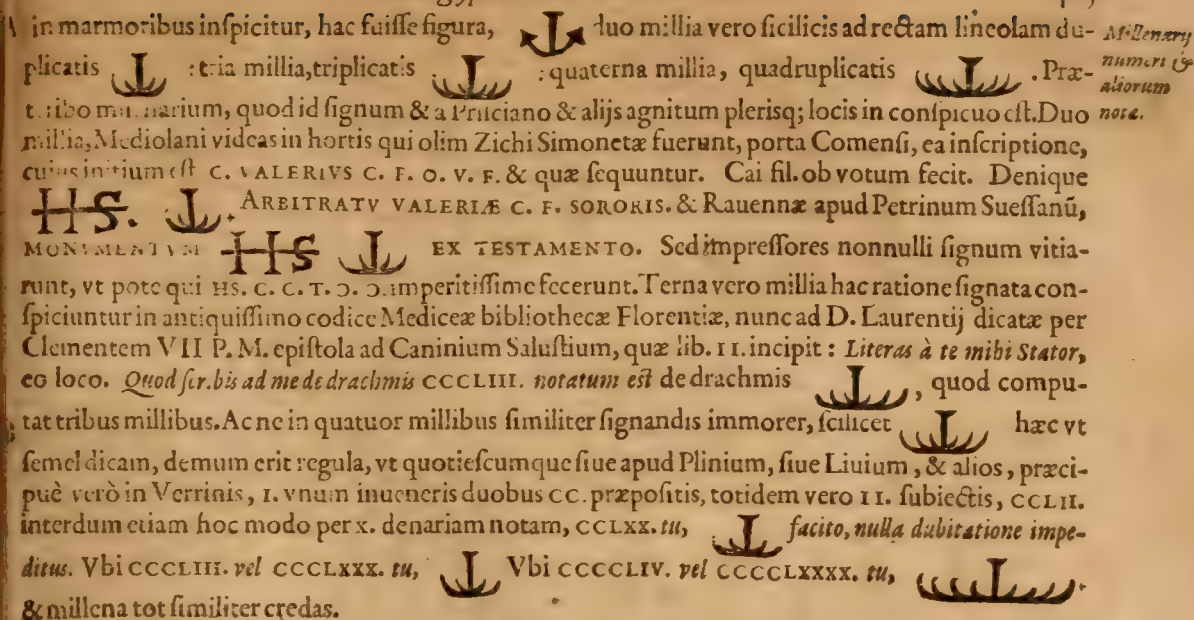 in marmoribus inſpicitur, hac fuiſſe figura, duo millia vero ſicilicis ad rectam lineolam du-
plicatis : tria millia, triplicatis : quaterna millia, quadruplicatis . Præ-
quod id ſignum & a Priſciano & alijs agnitum plerisq; locis in conſpicuo eſt. Duo
millia, Mediolani videas in hortis qui olim Zichi Simonetæ fuerunt, porta Comenſi, ea inſcriptione,
cuius initium eſt C. VALERIVS C. F. O. V. F. & quæ ſequuntur. Cai fil. ob votum fecit. Denique
HS. . ARBITRATV VALERIÆ C. F. SORORIS. & Rauennæ apud Petrinum Sueſſanũ,
MONVMENTVM HS EX TESTAMENTO. Sed impreſſores nonnulli ſignum vitia-
runt, vt pote qui HS. C. C. T. Ɔ. Ɔ. imperitiſſime fecerunt. Terna vero millia hac ratione ſignata con-
ſpiciuntur in antiquiſſimo codice Mediceæ bibliothecæ Florentiæ, nunc ad D. Laurentij dicatæ per
Clementem VII P. M. epiſtola ad Caninium Saluſtium, quæ lib. II. incipit : Literas à te mihi Stator,
eo loco. Quod ſcribis ad me de drachmis CCCLIII. notatum eſt de drachmis , quod compu-
tat tribus millibus. Ac ne in quatuor millibus ſimiliter ſignandis immorer, ſcilicet hæc vt
ſemel dicam, demum erit regula, vt quotieſcumque ſiue apud Plinium, ſiue Liuium, & alios, præci-
puè verò in Verrinis, I. vnum inueneris duobus CC. præpoſitis, totidem vero II. ſubiectis, CCLII.
interdum etiam hoc modo per x. denariam notam, CCLXX. tu, facito, nulla dubitatione impe-
ditus. Vbi CCCLIII. vel CCCLXXX. tu, Vbi CCCCLIV. vel CCCCLXXXX. tu, .
& millena tot ſimiliter credas.
Millenarij
numeri &
aliorum
nota.